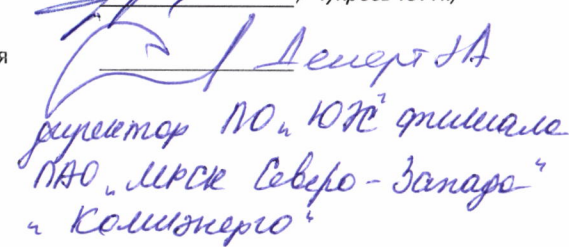 я
директор ПО „ЮЭС“ филиала
ПАО „МРСК Северо-Запада“
„Комиэнерго“